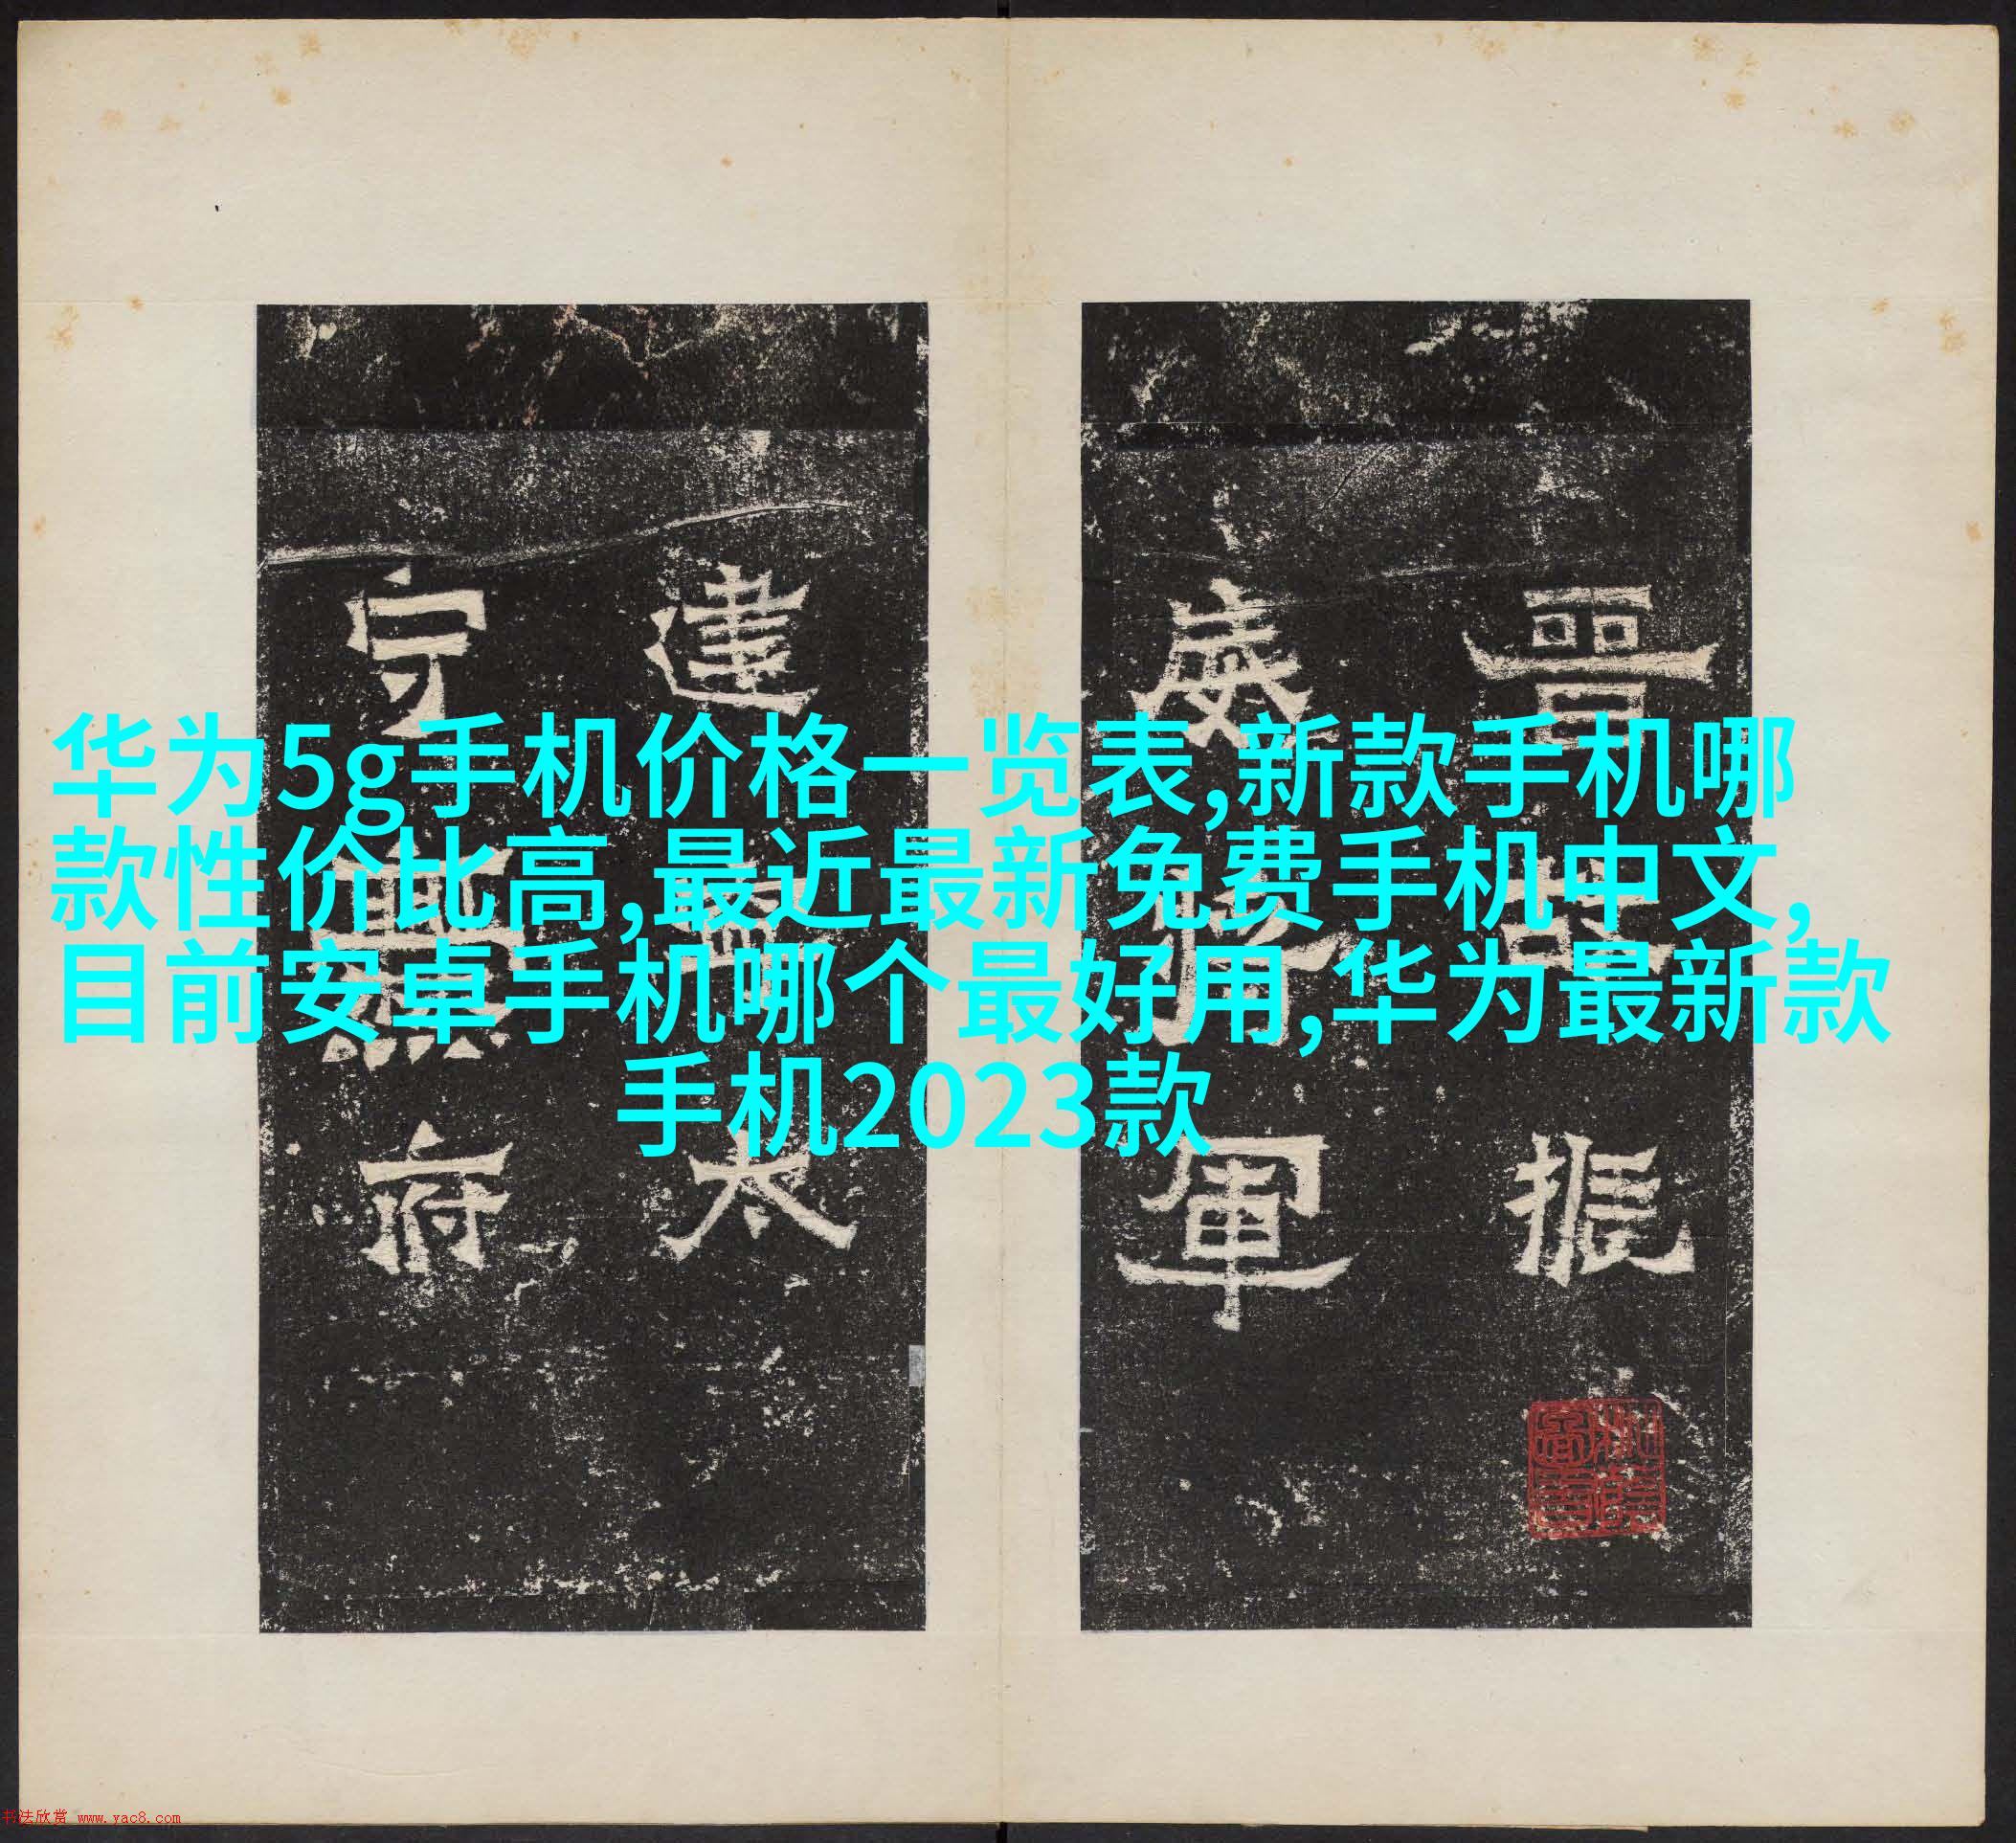 华为5g手机价格一览表,新款手机哪
款性价比高,最近最新免费手机中文,
目前安卓手机哪个最好用,华为最新款
手机2023款
晉 振
威 軍
建 太
守 府
书法欣赏 www.yac8.com